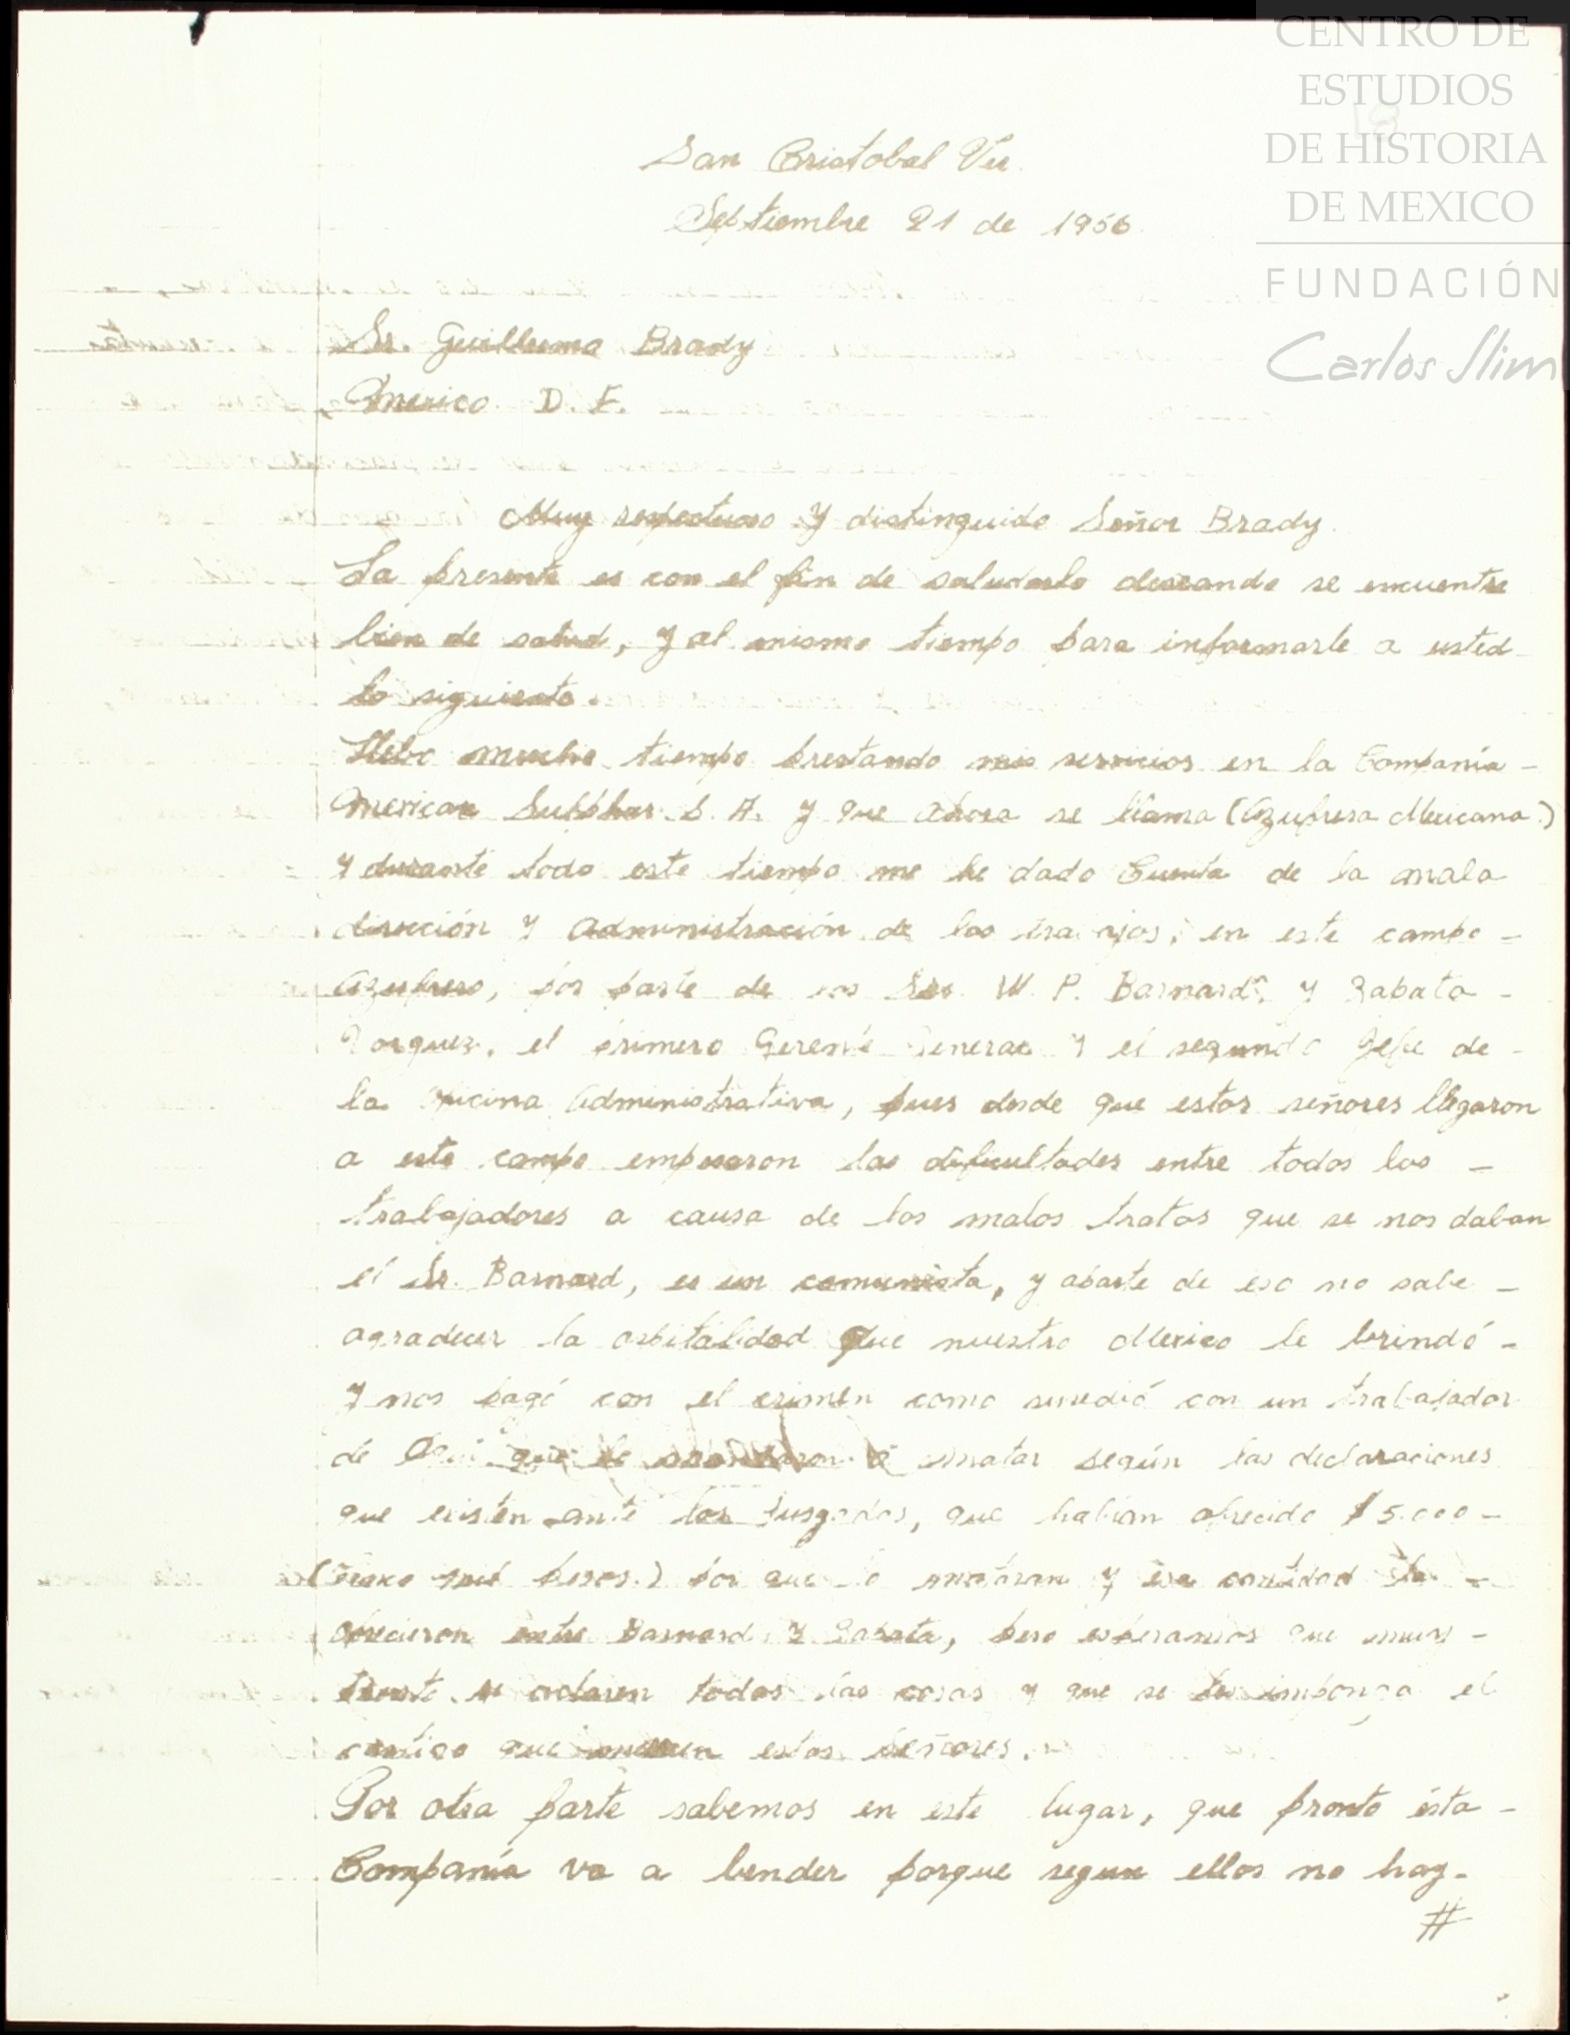 CENTRO DE
ESTUDIOS
DE HISTORIA
DE MEXICO
FUNDACIÓN
Carlos Slim
San Cristobal Ver.
Septiembre 21 de 1956
Sr. Guillermo Brady
Mexico D. F.
Muy respectuoso y distinguido Señor Brady.
La presente es con el fin de saludarlo deseando se encuentre
bien de salud, y al mismo tiempo para informarle a usted
lo siguiente.
Llebo mucho tiempo prestando mis servicios en la Compania -
American Sulphur S. A. y que ahora se llama (Azufrera Mexicana.)
y durante todo este tiempo me he dado Cuenta de la mala
dirección y administración de los trabajos, en este campo -
Azufrero, por parte de los Sres. W. P. Barnard, y Zabata -
el primero Gerente General y el segundo Jefe de -
la oficina administrativa, pues desde que estos señores llegaron
a este campo empesaron las dificultades entre todos los -
trabajadores a causa de los malos tratos que se nos daban
el Sr. Barnard, es un comunista, y aparte de eso no sabe -
agradecer la ospitalidad que nuestro Mexico le brindó -
y nos pagó con el crimen como sucedió con un trabajador
de que lo a matar según las declaraciones
que existen ante los Jusgados, que habian ofrecido $ 5.000 -
(cinco mil pesos.) por que lo mataran y esa cantidad la -
ofrecieron entre Barnard y Zabata, pero esperamos que muy -
pronto se aclaren todas las cosas y que se les imponga el
castigo que merecen estos señores.
Por otra parte sabemos en este lugar, que pronto ésta -
Compania va a bender porque segun ellos no hay -
#